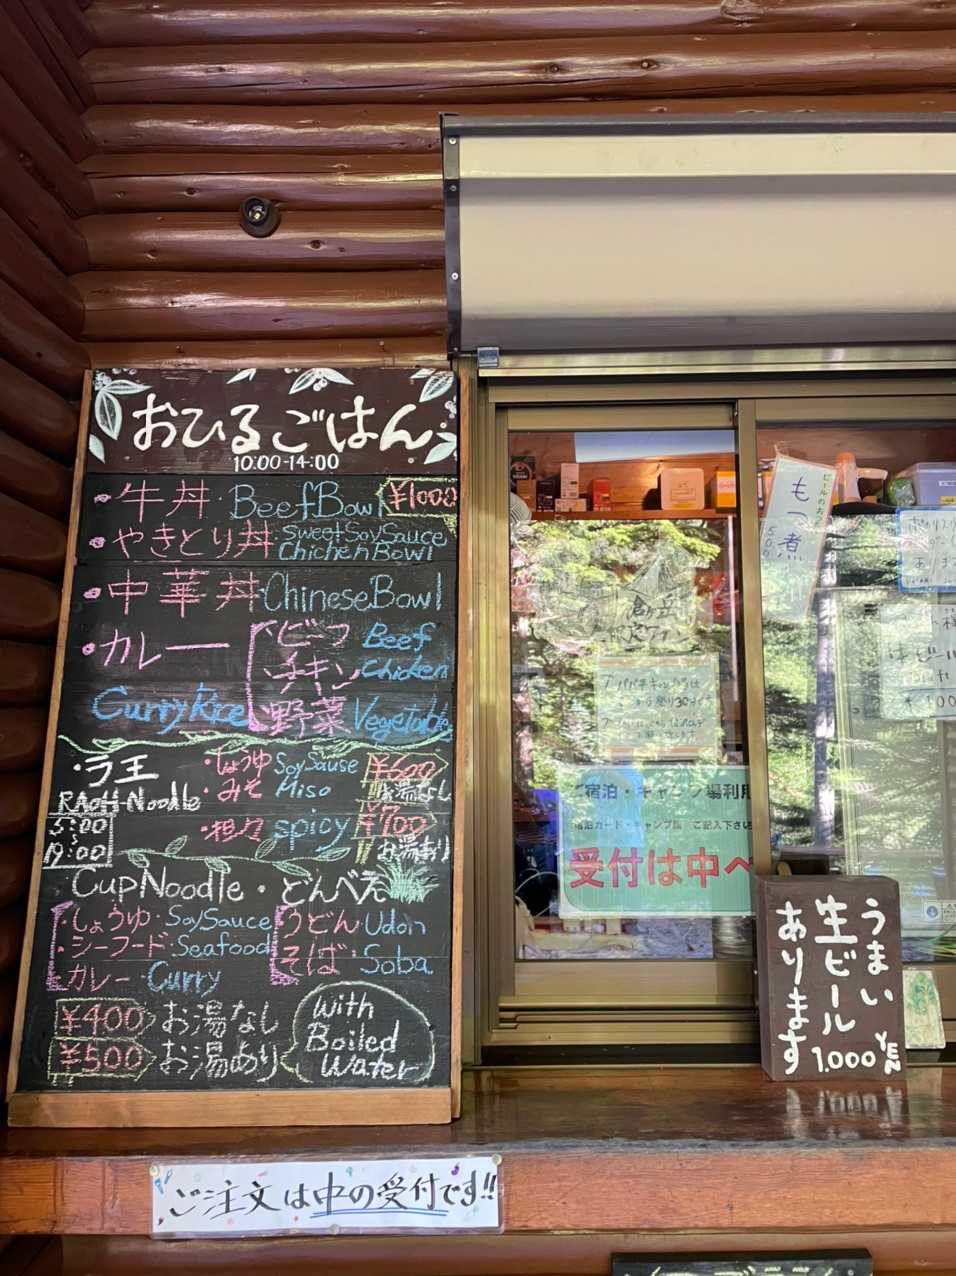 おひるごはん
10:00-14:00
・牛丼・BeefBowl ¥1000
・やきとり丼 SweetSoySauce
ChichenBowl
・中華丼・ChineseBowl
・カレー ビーフ Beef
チキン Chicken
CurryRice 野菜 Vegetable
・ラ王 ・しょうゆ SoySause ¥600
RAOH-Noodle ・みそ Miso お湯なし
5:00
〜
19:00
・担々 spicy ¥700
お湯あり
CupNoodle・どんべえ
・しょうゆ・SoySauce うどん・Udon
・シーフード・Seafood そば・Soba
カレー・Curry
¥400 お湯なし
¥500 お湯あり
With
Boiled
Water
ご注文は中の受付です!!
もつ煮
500
宿泊・キャンプ場利用
ご記入下さい
受付は中へ
うまい
生ビール
あります
1.000 YEN